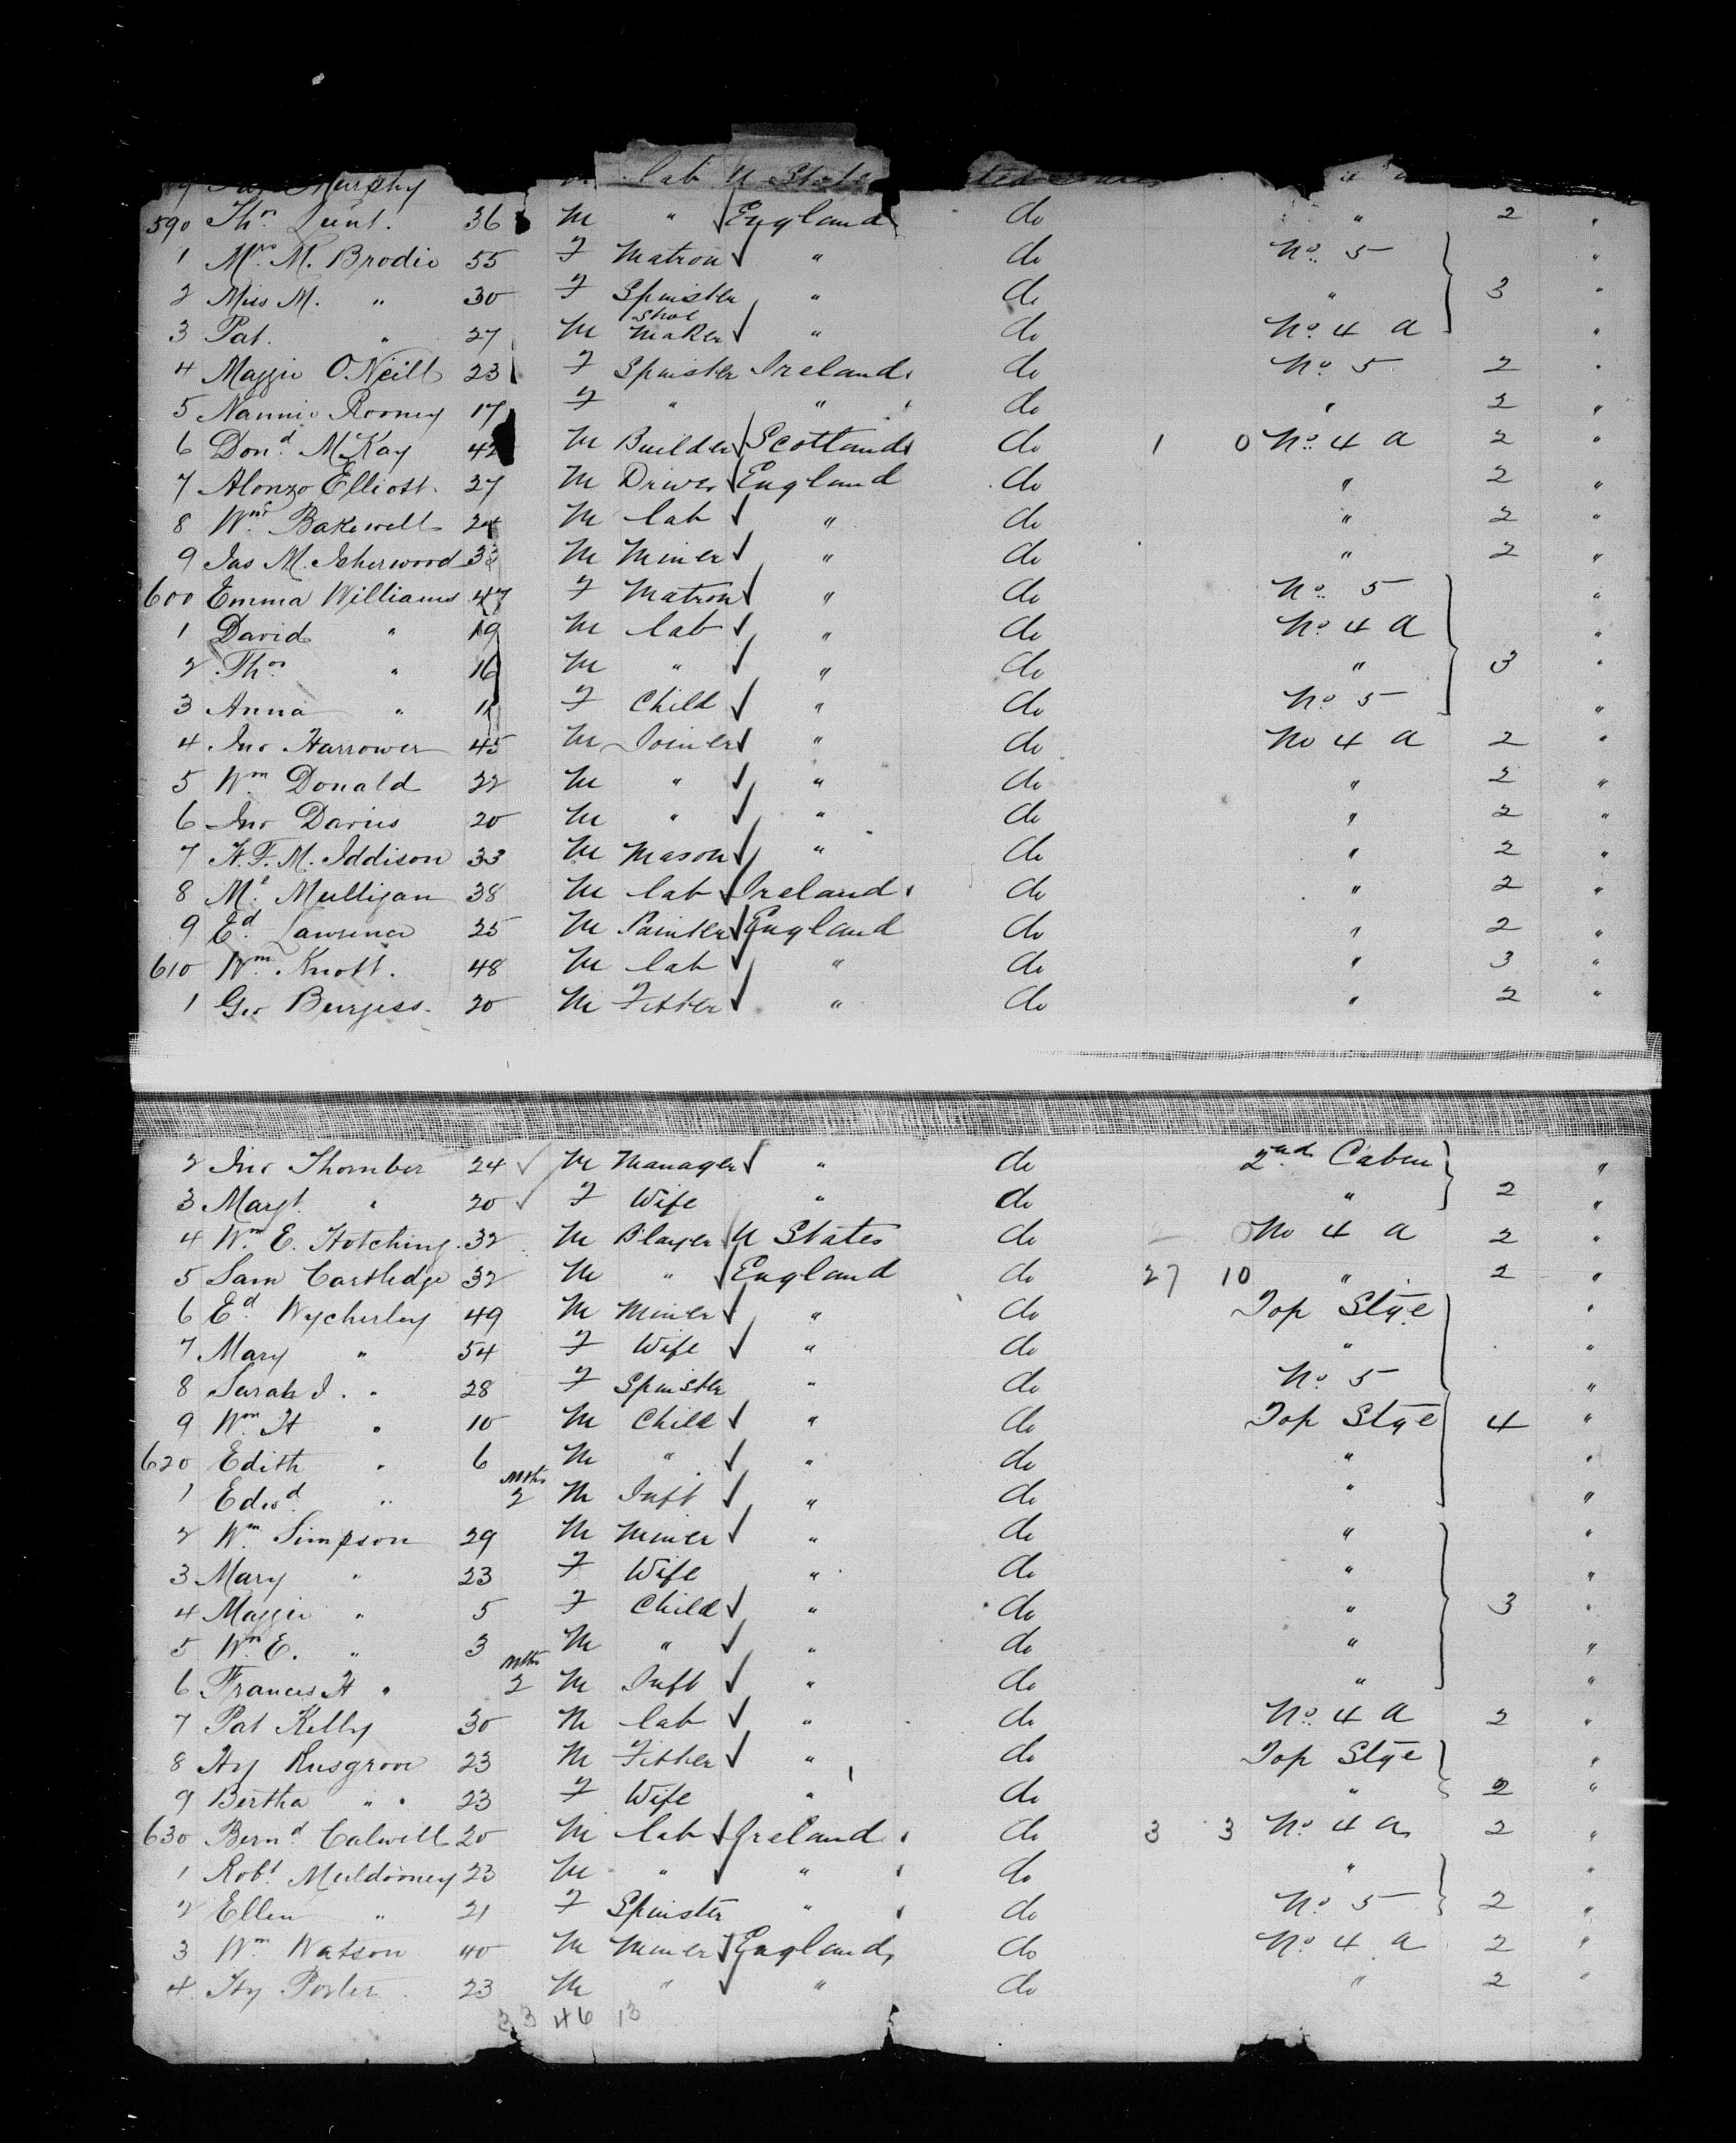 Murphy lab U States
590 Thos Lunt. 36 M " England do " 2 "
1 Mrs M. Brodie 55 F Matron " do No 5 "
2 Miss M. " 30 F Spinster " do " 3 "
3 Pat. " 27 M Shoe Maker " do No 4 a "
4 Maggie O'Neill 23 F Spinster Ireland do No 5 2 "
5 Nannie Rooney 17 F " " do " 2 "
6 Dond McKay 42 M Builder Scotland do 1 0 No 4 a 2 "
7 Alonzo Elliott. 27 M Driver England do " 2 "
8 Wm Bakewell 24 M lab " do " 2 "
9 Jas M. Isherwood 33 M Miner " do " 2 "
600 Emma Williams 47 F Matron " do No 5 "
1 David " 19 M lab " do No 4 a "
2 Thos " 16 M " " do " 3 "
3 Anna " 11 F Child " do No 5 "
4 Jno Harrower 45 M Joiner " do No 4 a 2 "
5 Wm Donald 22 M " " do " 2 "
6 Jno Davies 20 M " " do " 2 "
7 H. F. M. Iddison 33 M Mason " do " 2 "
8 Ml Mulligan 38 M lab Ireland do " 2 "
9 Ed Lawrence 25 M Painter England do " 2 "
610 Wm Knott. 48 M lab " do " 3 "
1 Geo Burgess. 20 M Fitter " do " 2 "
2 Jno Thornber 24 M Manager " do 2nd Cabin "
3 Margt " 20 F Wife " do " 2 "
4 Wm E. Hotching. 32 M Player U States do No 4 a 2 "
5 Sam Cartledge 32 M " England do 27 10 " 2 "
6 Ed Wycherley 49 M Miner " do Top Stge "
7 Mary " 54 F Wife " do " "
8 Sarah J. " 28 F Spinster " do No 5 "
9 Wm H " 10 M Child " do Top Stge 4 "
620 Edith " 6 M " " do " "
1 Edwd " 2 Mths M Inft " do " "
2 Wm Simpson 29 M Miner " do " "
3 Mary " 23 F Wife " do " "
4 Maggie " 5 F Child " do " 3 "
5 Wm E. " 3 M " " do " "
6 Francis H " 2 Mths M Inft " do " "
7 Pat Kelly 30 M lab " do No 4 a 2 "
8 Hy Rusgrove 23 M Fitter " do Top Stge "
9 Bertha " 23 F Wife " do " 2 "
630 Bernd Calwell 20 M lab Ireland do 3 3 No 4 a 2 "
1 Robt Muldooney 23 M " " do " "
2 Ellen " 21 F Spinster " do No 5 2 "
3 Wm Watson 40 M Miner England do No 4 a 2 "
4 Hy Porter 23 M " " do " 2 "
33 46 13